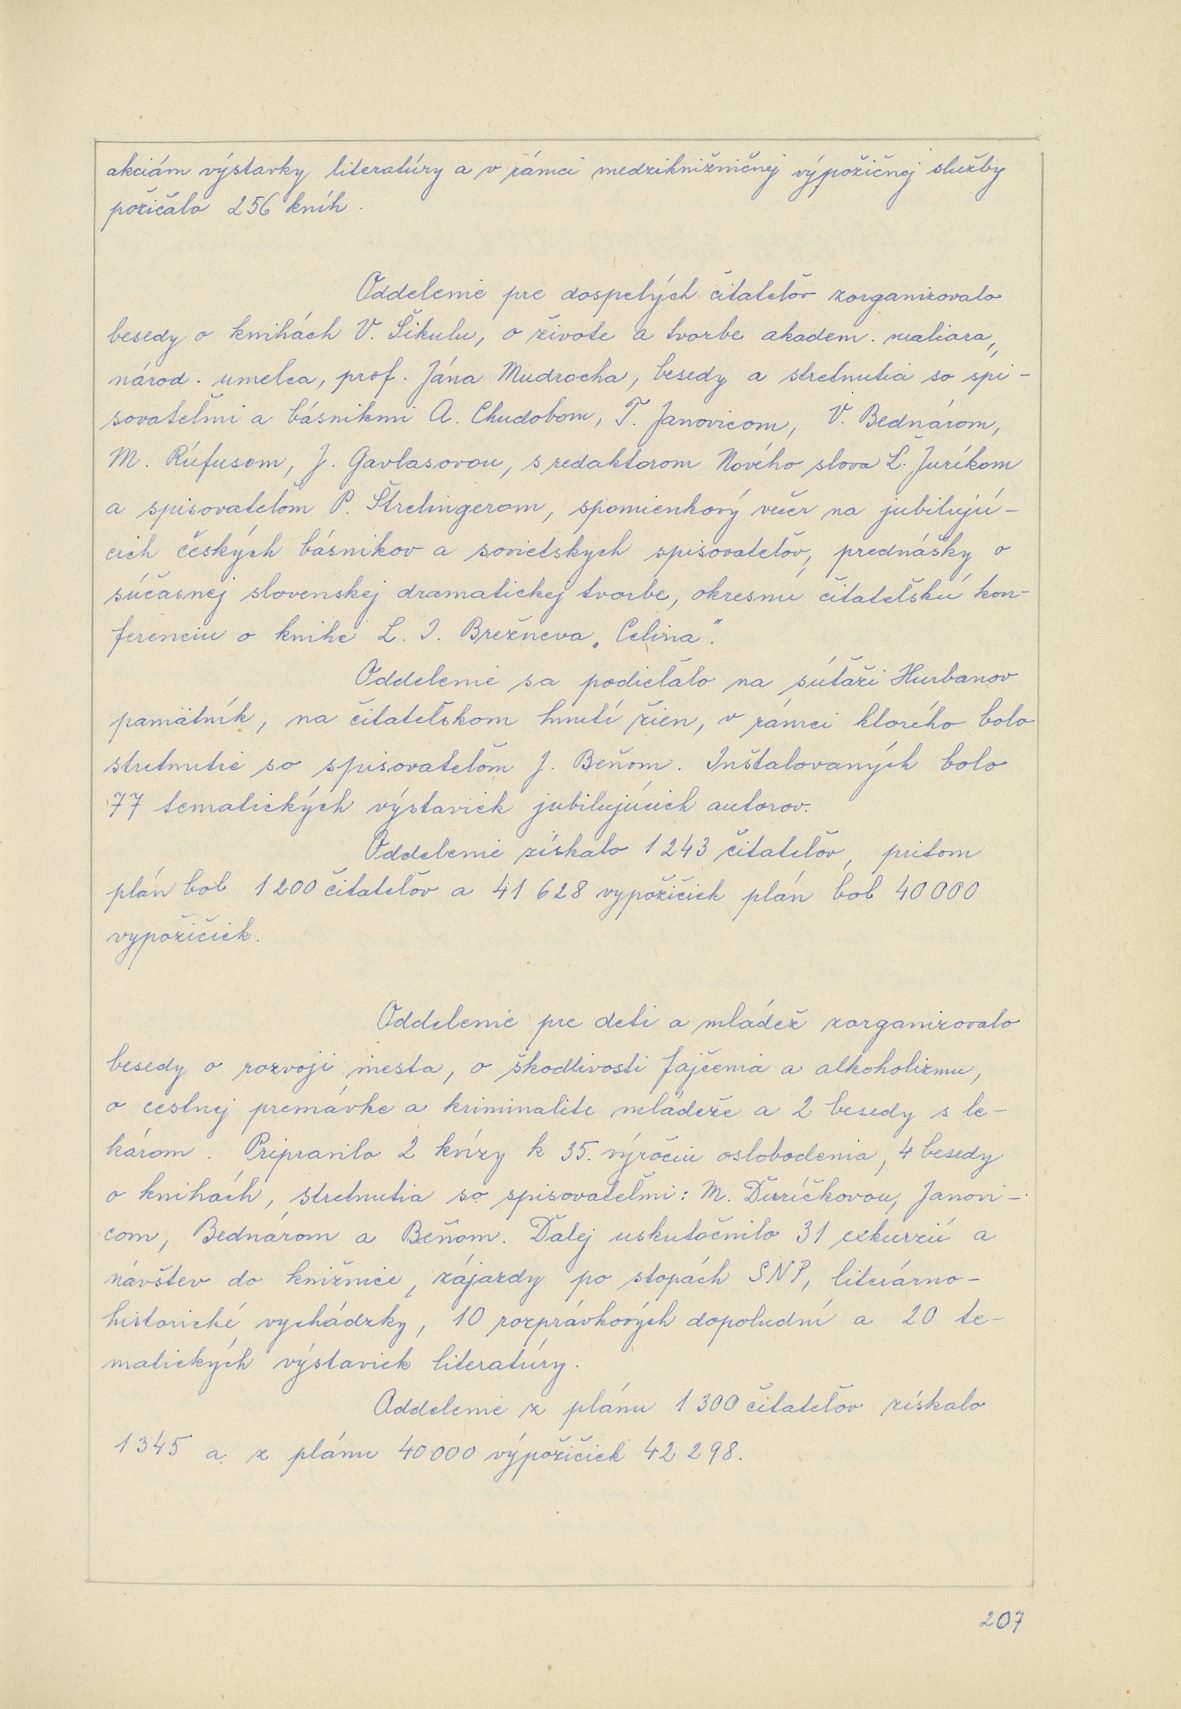 akciám výstavky literatúry a v rámci medziknižničnej výpožičnej služby
požičalo 256 kníh.
Oddelenie pre dospelých čitateľov zorganizovalo
besedy o knihách V. Šikulu, o živote a tvorbe akadem. maliara,
národ. umelca, prof. Jána Mudrocha, besedy a stretnutia so spi-
sovateľmi a básnikmi A. Chudobom, T. Janovicom, V. Bednárom,
M. Rúfusom, J. Gavlasovou, s redaktorom Nového slova Ľ. Juríkom
a spisovateľom P. Štrelingerom, spomienkový večer na jubilujú-
cich českých básnikov a sovietskych spisovateľov, prednášky o
súčasnej slovenskej dramatickej tvorbe, okresnú čitateľskú kon-
ferenciu o knihe L. I. Brežneva „Celina".
Oddelenie sa podieľalo na súťaži Hurbanov
pamätník, na čitateľskom hnutí žien, v rámci ktorého bolo
stretnutie so spisovateľom J. Beňom. Inštalovaných bolo
77 tematických výstaviek jubilujúcich autorov.
Oddelenie získalo 1 243 čitateľov, pritom
plán bol 1 200 čitateľov a 41 628 vypožičiek plán bol 40 000
vypožičiek.
Oddelenie pre deti a mládež zorganizovalo
besedy o rozvoji mesta, o škodlivosti fajčenia a alkoholizmu,
o cestnej premávke a kriminalite mládeže a 2 besedy s le-
károm. Pripravilo 2 kvízy k 35. výročiu oslobodenia, 4 besedy
o knihách, stretnutia so spisovateľmi: M. Ďuríčkovou, Janovi-
com, Bednárom a Beňom. Ďalej uskutočnilo 31 exkurzií a
návštev do knižnice, zájazdy po stopách SNP, literárno-
historické vychádzky, 10 rozprávkových dopoludní a 20 te-
matických výstaviek literatúry.
Oddelenie z plánu 1 300 čitateľov získalo
1 345 a z plánu 40 000 výpožičiek 42 298.
207